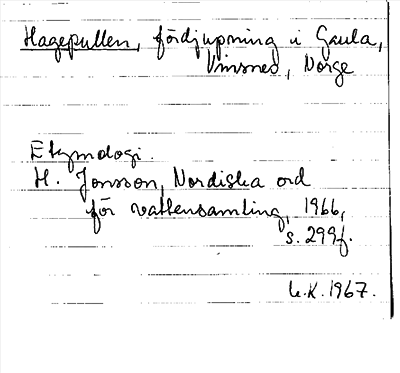 Hagepullen, fördjupning i Gaula,
Vinsnes, Norge
Etymologi.
H. Jonsson, Nordiska ord
för vattensamling, 1966,
s. 299f.
L.K. 1967.